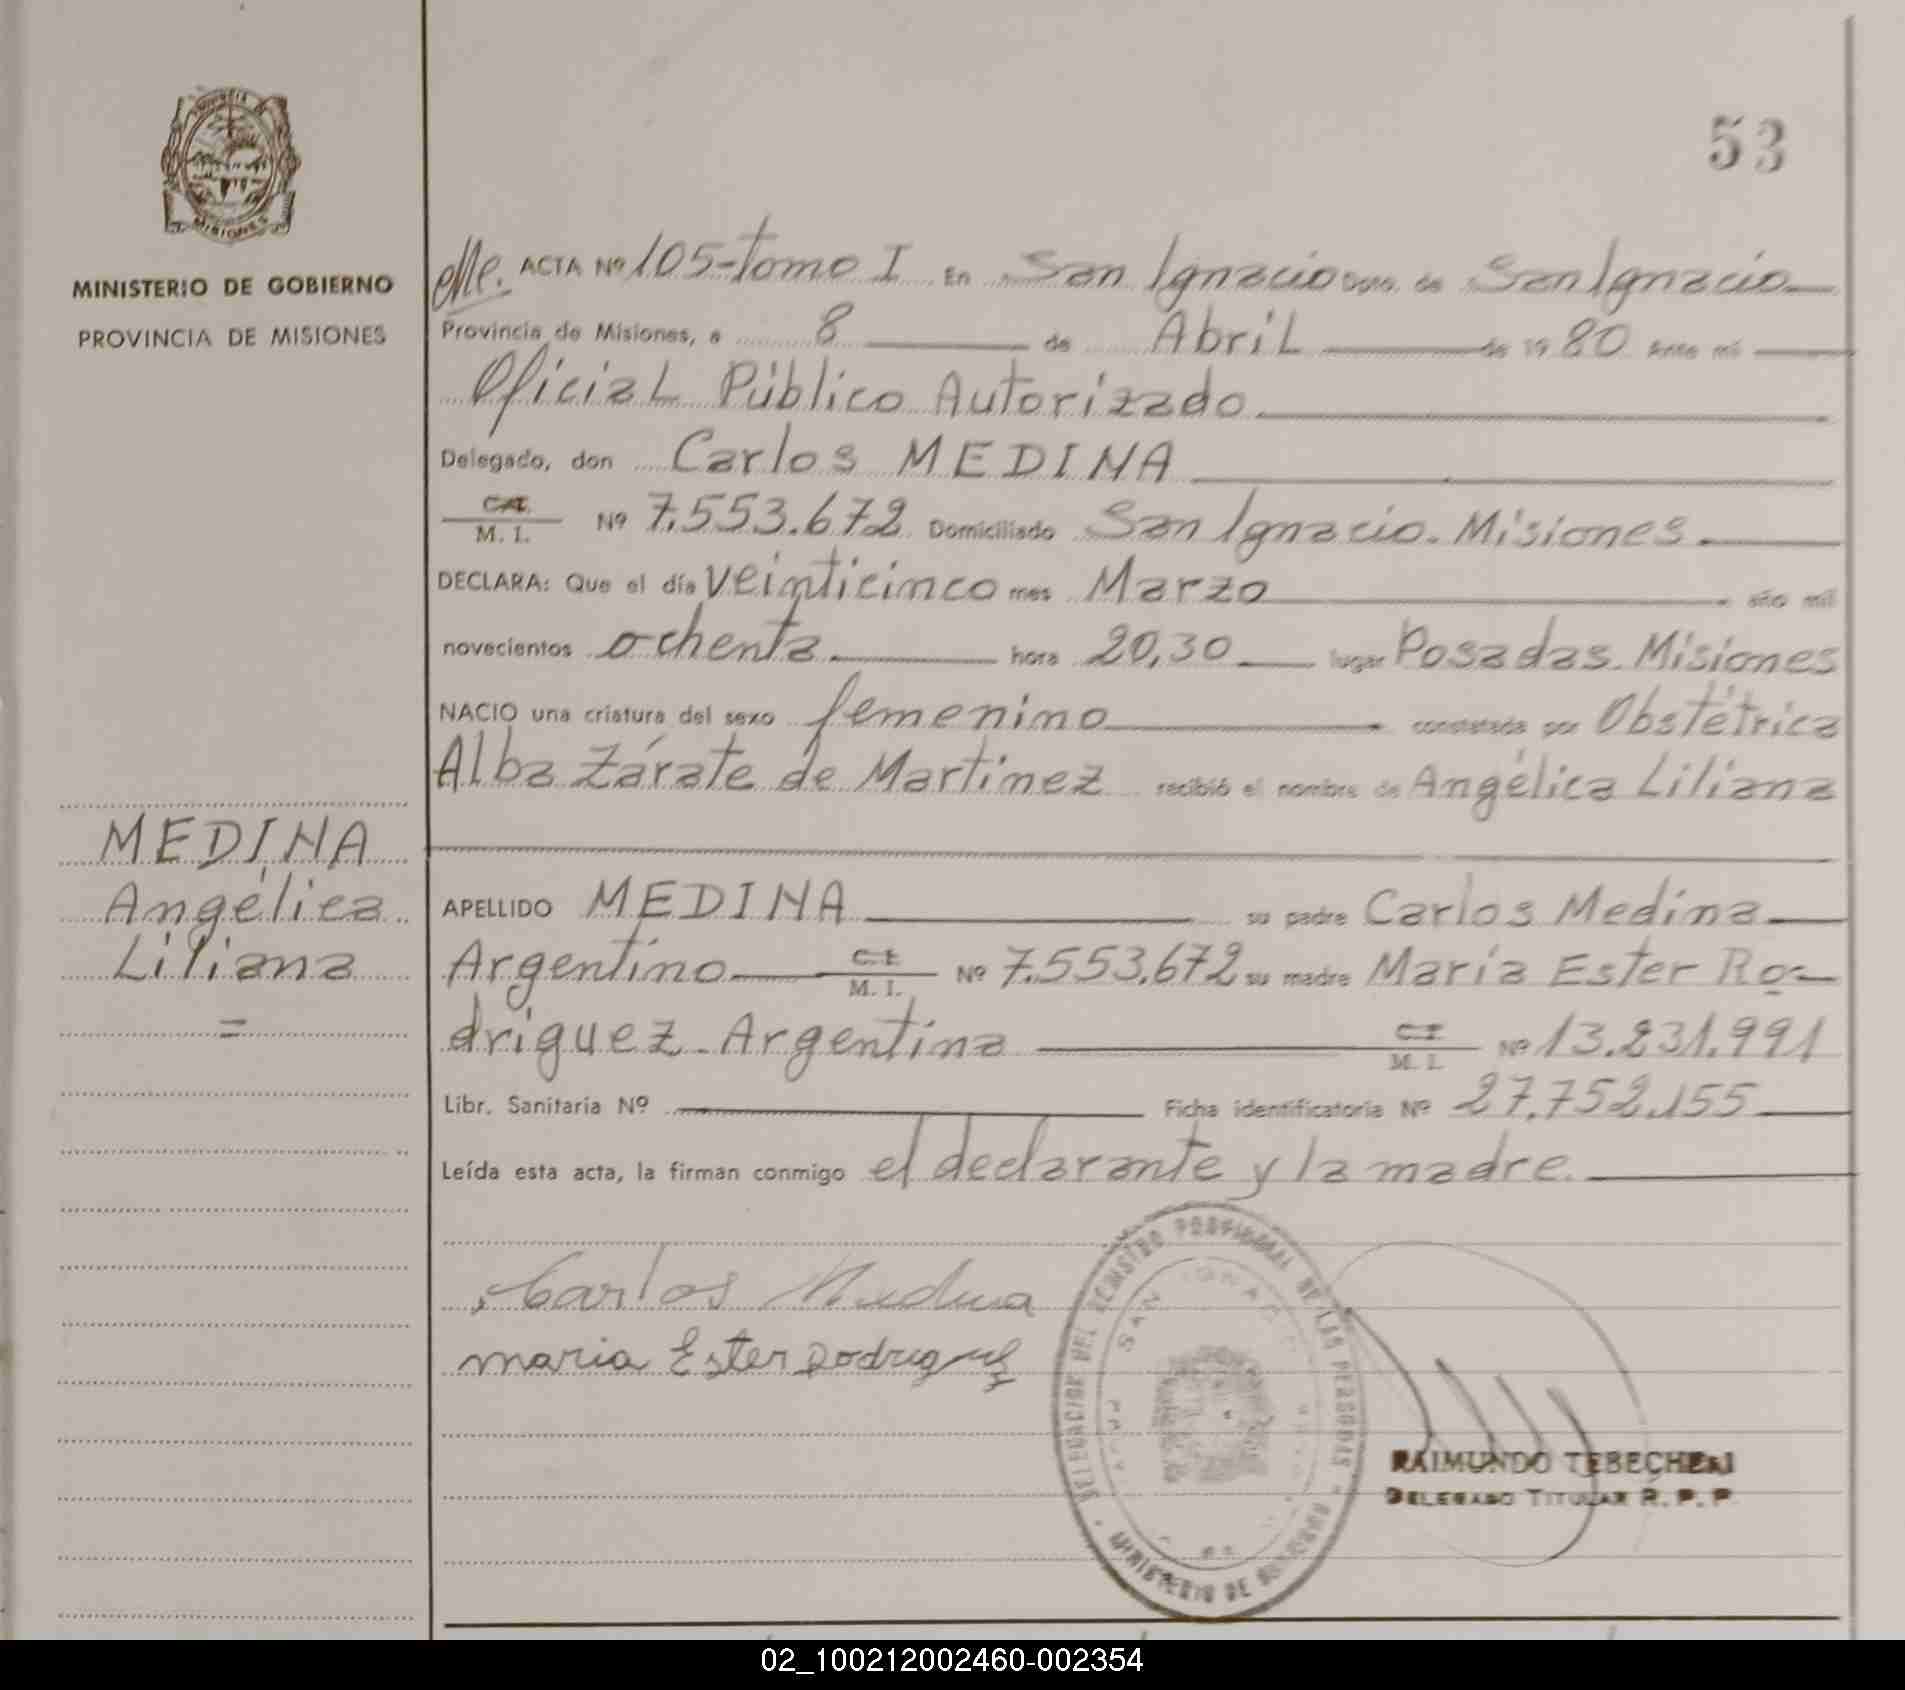 53
MINISTERIO DE GOBIERNO
PROVINCIA DE MISIONES
ACTA Nº 105-Tomo I En San Ignacio Dpto. de San Ignacio
Provincia de Misiones, a 8 de Abril de 1980 Ante mí
Oficial Público Autorizado
Delegado, don Carlos MEDINA
C.I.
M. I. Nº 7.553.672 Domiciliado San Ignacio. Misiones
DECLARA: Que el día veinticinco mes Marzo año mil
novecientos ochenta hora 20,30 lugar Posadas. Misiones
NACIO una criatura del sexo femenino constatada por Obstétrica
Alba Zárate de Martinez recibió el nombre de Angélica Liliana
MEDINA
Angélica
Liliana
=
APELLIDO MEDINA su padre Carlos Medina
Argentino C.I. M. I. Nº 7.553.672 su madre María Ester Ro-
driguez. Argentina C.I. M. I. Nº 13.231.991
Libr. Sanitaria Nº Ficha identificatoria Nº 27.752.155
Leída esta acta, la firman conmigo el declarante y la madre.
Carlos Medina
maria Ester Rodriguez
DELEGACION DEL REGISTRO PROVINCIAL DE LAS PERSONAS
SAN IGNACIO
MINISTERIO DE GOBIERNO
RAIMUNDO
DELEGADO TITULAR R. P. P.
02_100212002460-002354